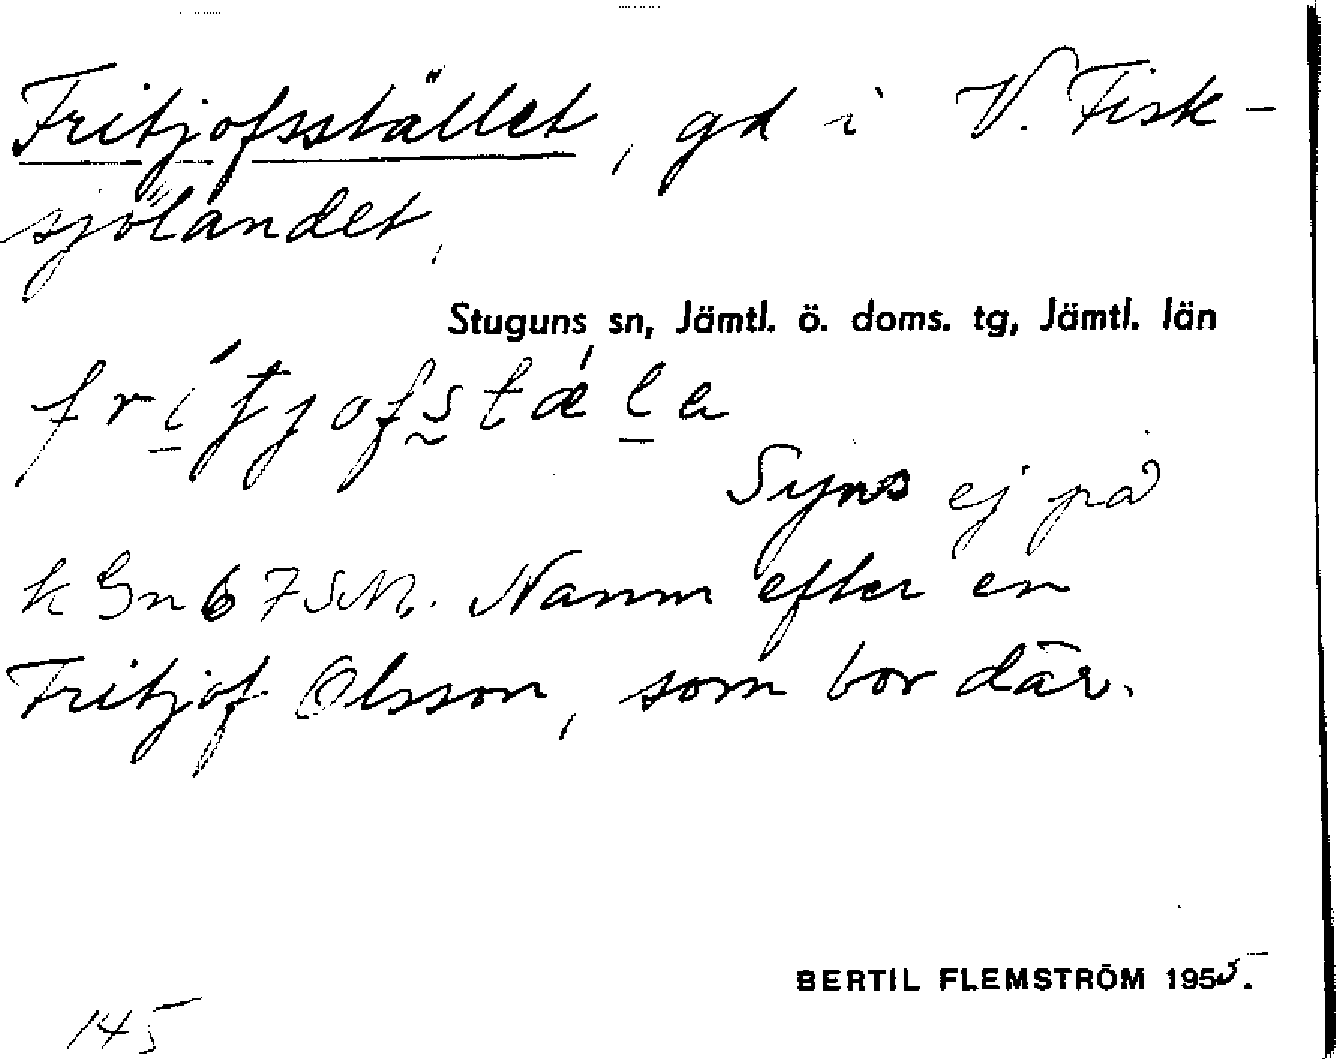 Fritjofsstället, gd i V. Fisk-
sjölandet,
Stuguns sn, Jämtl. ö. doms. tg, Jämtl. län
frítjofstǽla
Syns ej på
k Gn 67 SM. Namn efter en
Fritjof Olsson, som bor där.
BERTIL FLEMSTRÖM 1955.
145